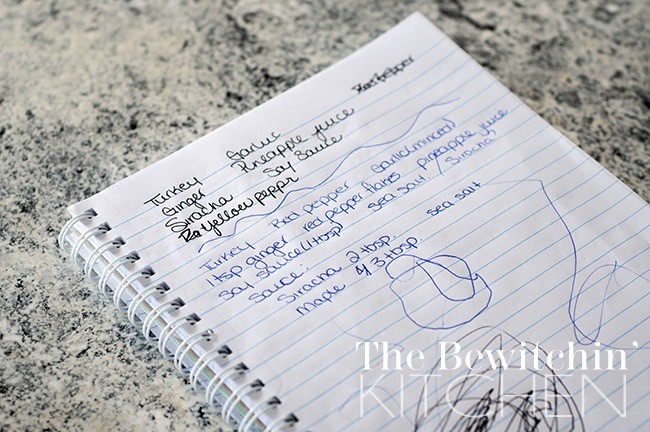 Turkey Garlic
Ginger Pineapple juice
Siracha Soy Sauce
Yellow pepper
Turkey Red pepper Garlic(minced)
1 tsp ginger red pepper flakes pineapple juice
Soy sauce(1 tbsp) sea salt / Siracha
Sauce: sea salt
Siracha 2 tbsp.
Maple 3 tbsp.
The Bewitchin'
KITCHEN